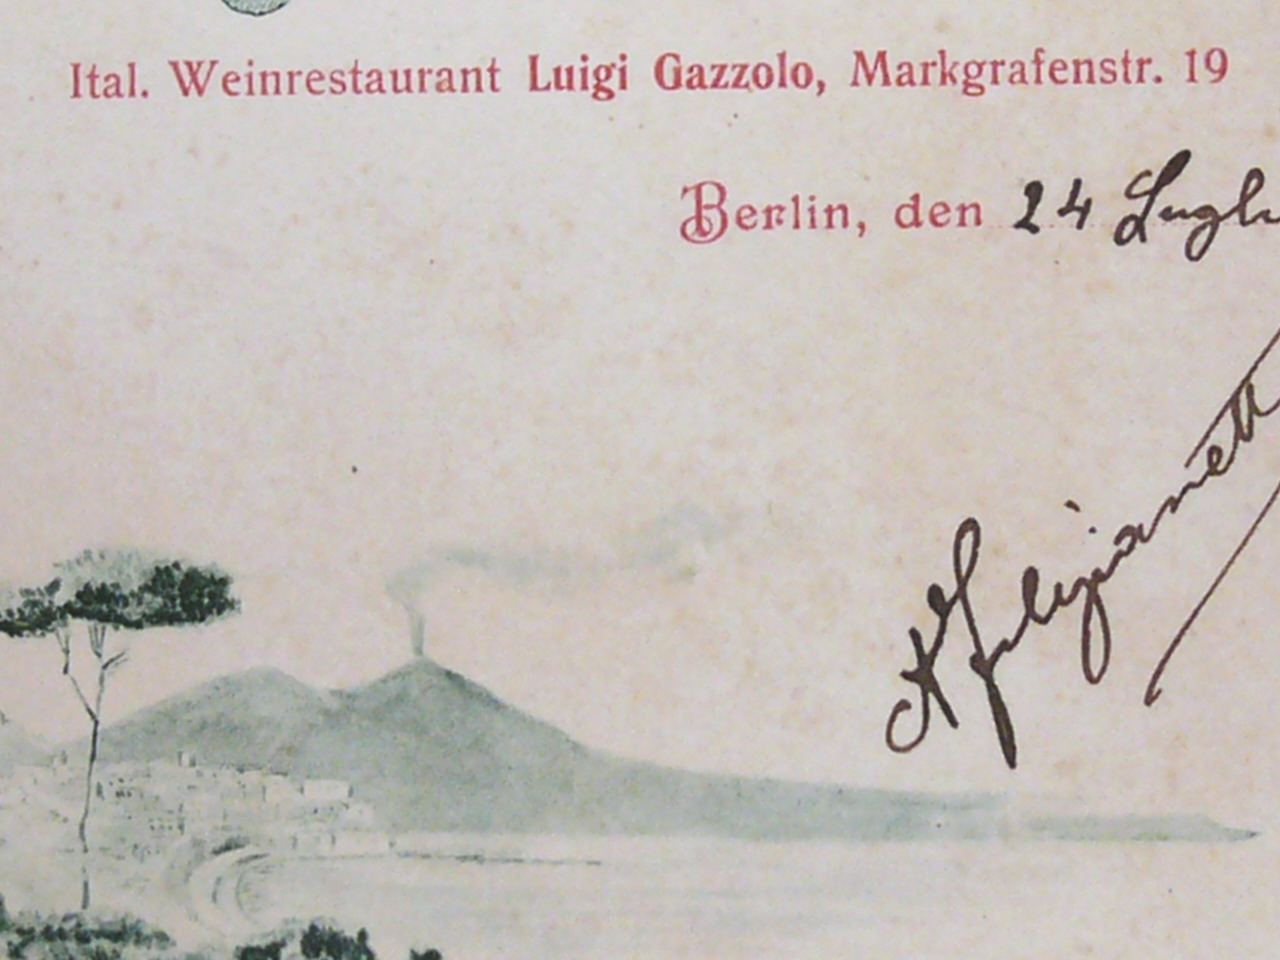 Ital. Weinrestaurant Luigi Gazzolo, Markgrafenstr. 19
Berlin, den 24 Lugli